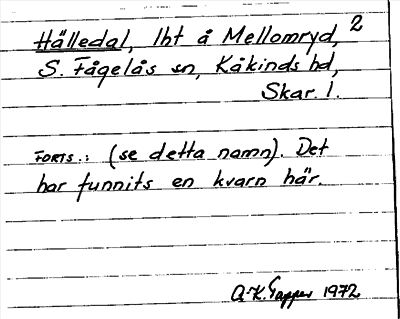 Hälledal, lht å Mellomryd, 2
S. Fågelås sn, Kåkinds hd,
Skar. l.
FORTS.: (se detta namn). Det
har funnits en kvarn här.
A-K. Tapper 1972